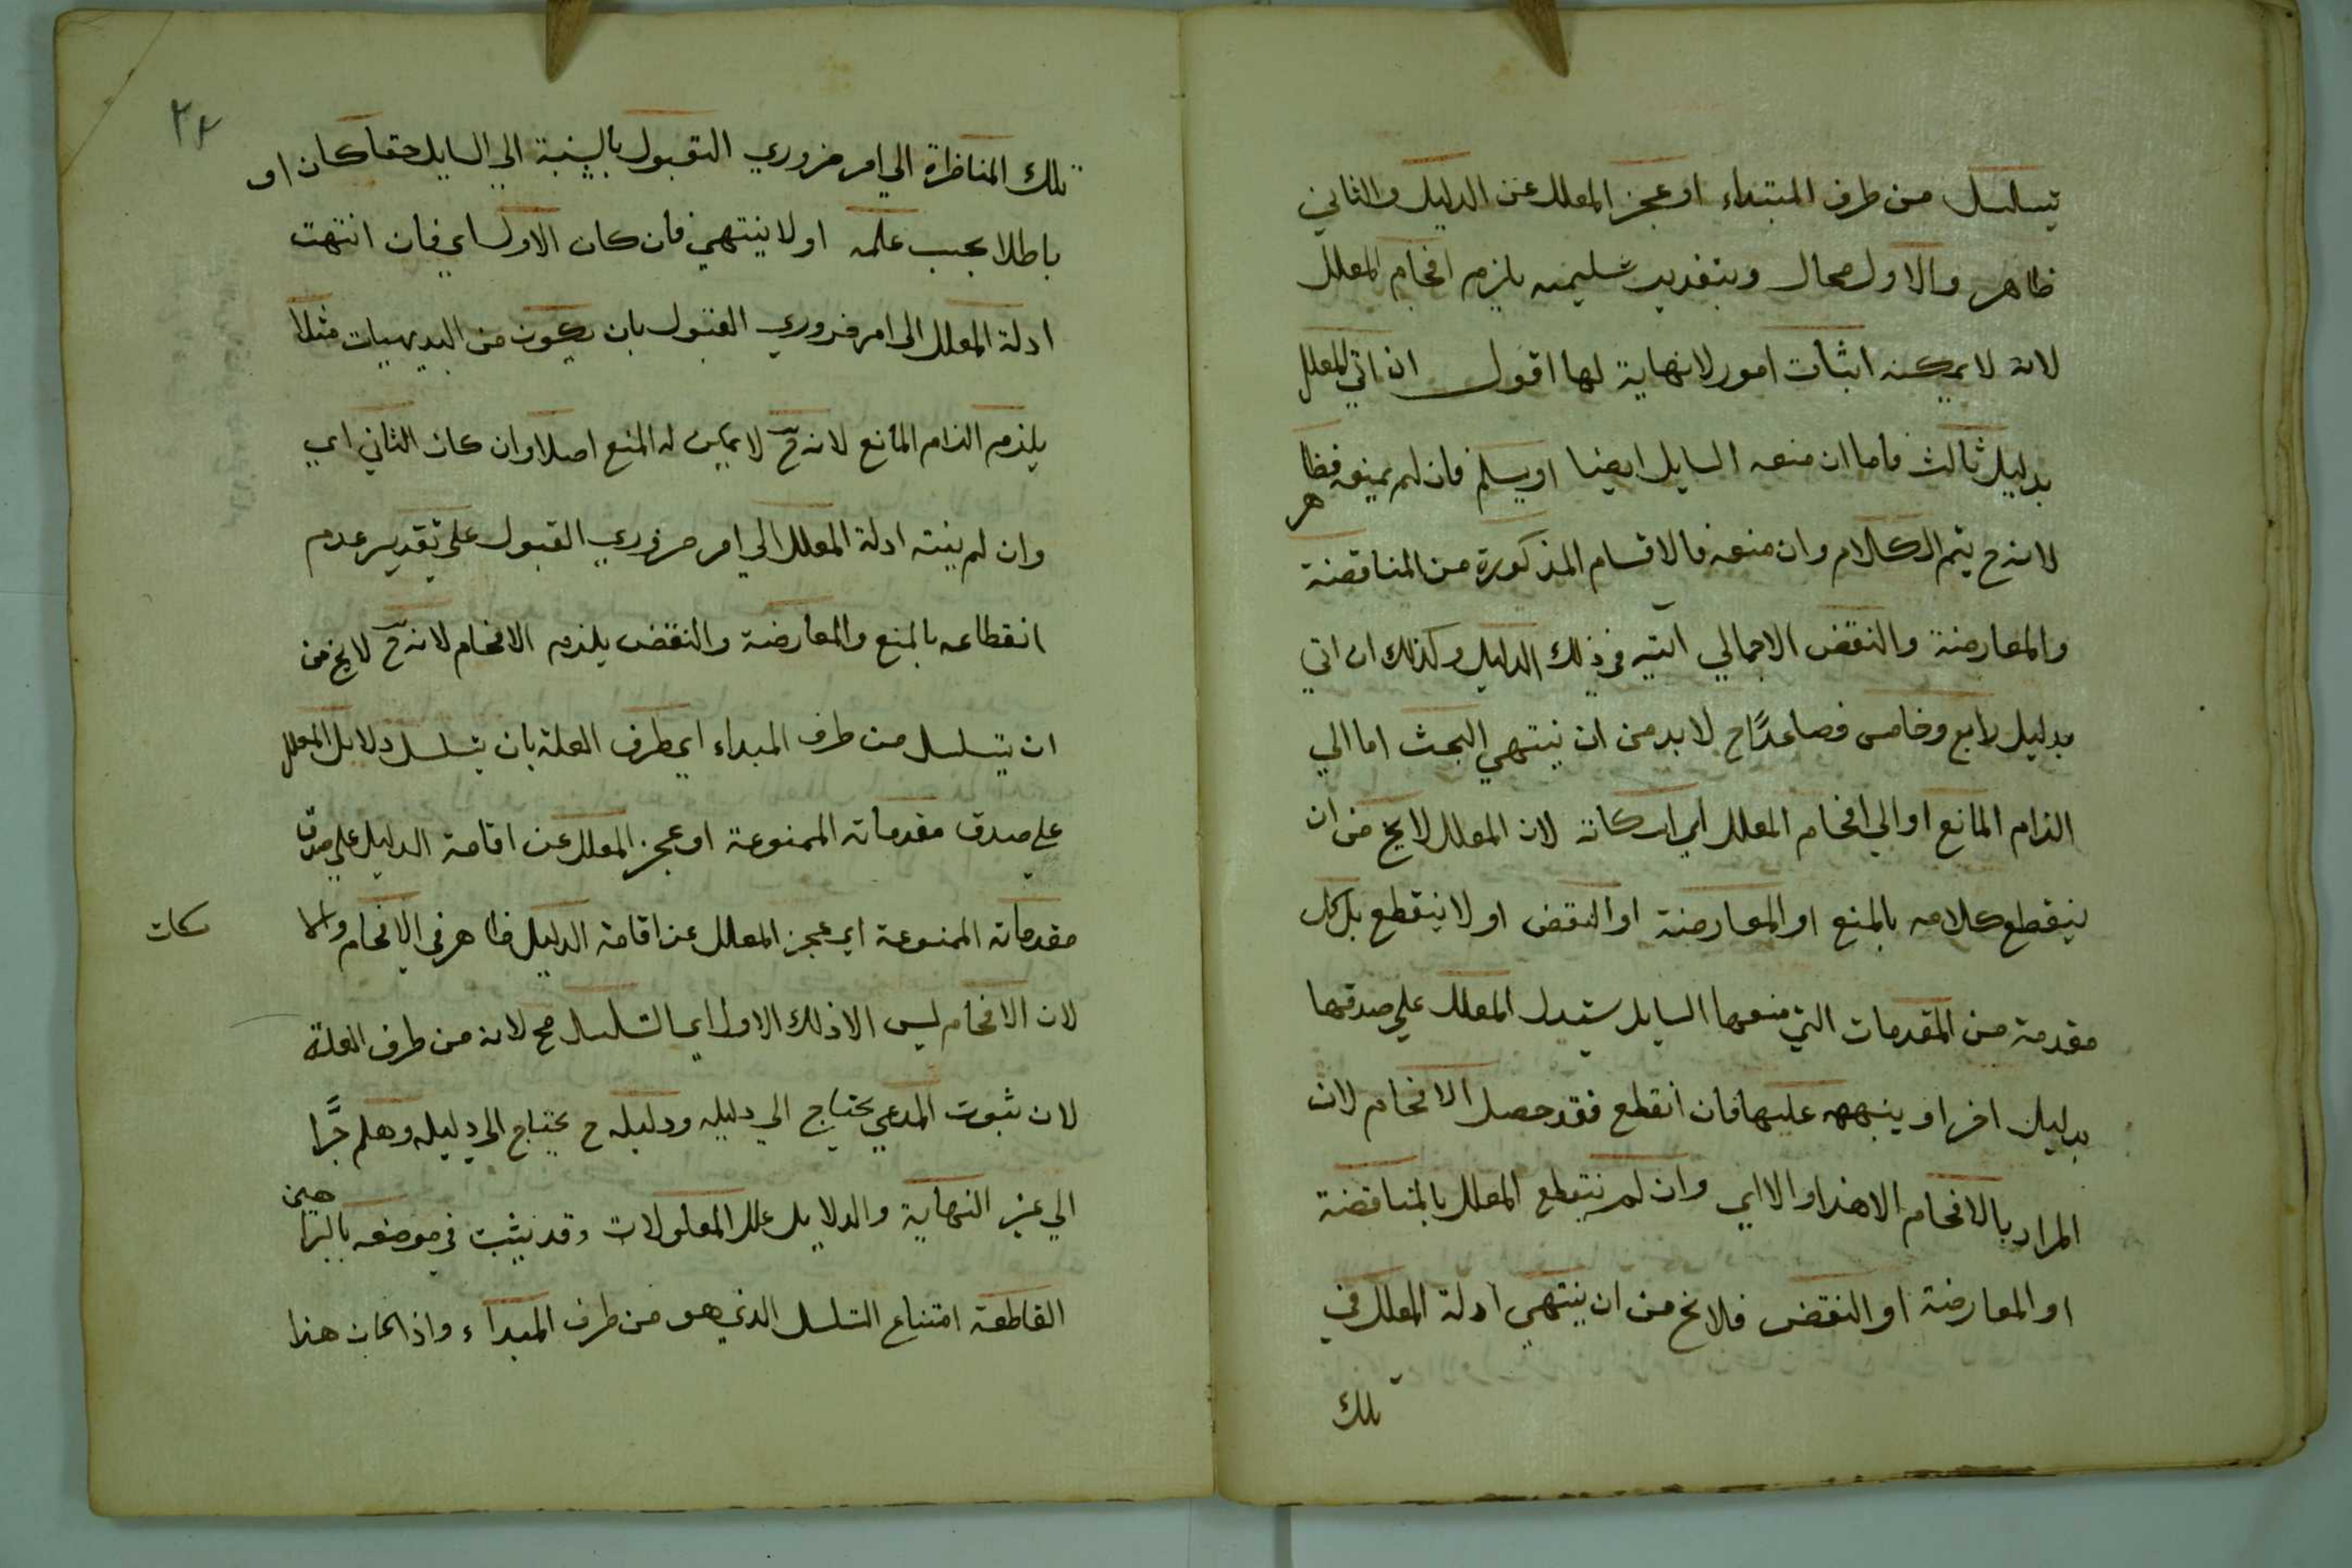 يتسلسل من طرف المبتداء او عجز المعلل عن الدليل والثاني
ظاهر والاول محال وبتقدير تسليمه يلزم افحام المعلل
لانه لا يمكنه اثبات امور لا نهاية لها اقول ان اتي المعلل
بدليل ثالث فاما ان منعه السايل ايضا او يسلم فان لم يمنعه فظاهر
لانه ح يتم الكلام وان منعه فالاقسام المذكورة من المناقضة
والمعارضة والنقض الاجمالي آتيه في ذلك الدليل وكذلك ان اتي
بدليل رابع وخامس فصاعدًا ح لا بد من ان ينتهي البحث اما الي
الزام المانع او الي افحام المعلل اي اسكاته لان المعلل لا يخ من ان
ينقطع كلامه بالمنع او المعارضة او النقض او لا ينقطع بل كل
مقدمة من المقدمات التي منعها السايل يستدل المعلل علي صدقها
بدليل اخر او ينبهه عليها فان انقطع فقد حصل الافحام لان
المراد بالافحام الا هذا والا اي وان لم ينقطع المعلل بالمناقضة
او المعارضة او النقض فلا يخ من ان ينتهي ادلة المعلل في
تلك
٢٤
تلك المناظرة الي امر ضروري القبول بالنسبة الي السايل حقا كان او
باطلا بحسب علمه او لا ينتهي فان كان الاول اي فان انتهت
ادلة المعلل الي امر ضروري القبول بان يكون من البديهيات مثلا
يلزم الزام المانع لانه ح لا يمكن له المنع اصلا وان كان الثاني اي
وان لم ينته ادلة المعلل الي امر ضروري القبول علي تقدير عدم
انقطاعه بالمنع والمعارضة والنقض يلزم الافحام لانه ح لا يخ من
ان يتسلسل من طرف المبداء اي طرف العلة بان يتسلسل دلايل المعلل
علي صدق مقدماته الممنوعة او عجز المعلل عن اقامة الدليل علي صدق
مقدماته الممنوعة اي عجز المعلل عن اقامة الدليل ظاهر في الافحام والاسكات
لان الافحام ليس الا ذلك الاول اي التسلسل مح لانه من طرف العلة
لان ثبوت المدعي يحتاج الي دليله ودليله ح يحتاج الي دليله وهلم جرًّا
الي غير النهاية والدلايل علل المعلولات وقد يثبت في موضعه بالبراهين
القاطعة امتناع التسلسل الذي هو من طرف المبداء واذا كان هذا